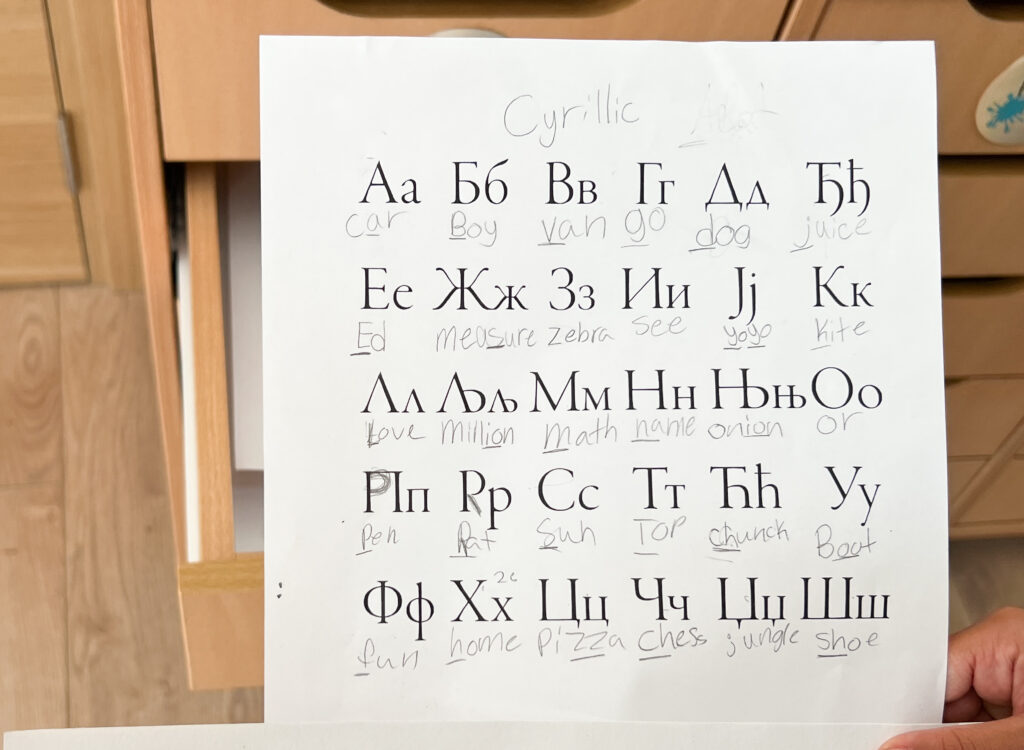 Cyrillic
Аа Бб Вв Гг Дд Ђђ
car Boy van go dog juice
Ее Жж Зз Ии Јј Кк
Ed measure zebra see yoyo kite
Лл Љљ Мм Нн Њњ Оо
Love million math name onion or
Пп Рр Сс Тт Ћћ Уу
Pen Rat Sun TOP chunch Boot
Фф Хх Цц Чч Џџ Шш
fun home pizza chess jungle shoe